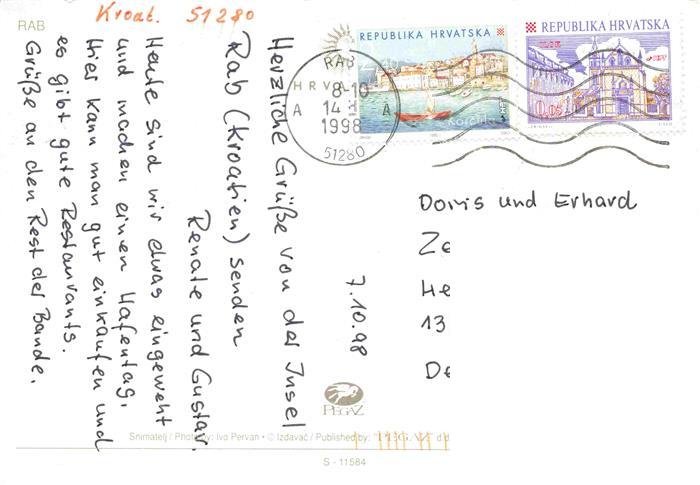 RAB
Kroat. 51280
Herzliche Grüße von der Insel
Rab (Kroatien) senden
Renate und Gustav.
Heute sind wir etwas eingeweht
und machen einen Hafentag.
Hier kann man gut einkaufen und
es gibt gute Restaurants.
Grüße an den Rest der Bande.
7.10.98
REPUBLIKA HRVATSKA
Korčula
REPUBLIKA HRVATSKA
0.05
RAB
8-10
1998
51280
A
A
Doris und Erhard
Ze
He
13
De
PEGAZ
Snimatelj / Photo by: Ivo Pervan • © Izdavač / Published by:
S - 11584